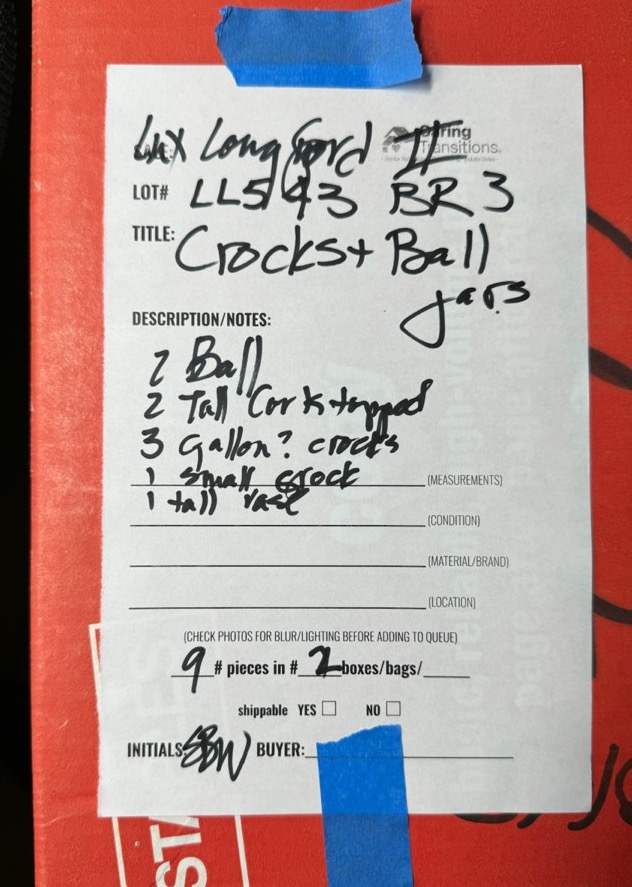 SALE: Lux Longford II
Caring
Transitions®
LOT# LL543 BR 3
TITLE: Crocks + Ball
jars
DESCRIPTION/NOTES:
2 Ball
2 Tall Cork topped
3 Gallon? crocks
1 small crock (MEASUREMENTS)
1 tall vase
(CONDITION)
(MATERIAL/BRAND)
(LOCATION)
(CHECK PHOTOS FOR BLUR/LIGHTING BEFORE ADDING TO QUEUE)
9 # pieces in # 2 boxes/bags/
shippable YES NO
INITIALS: SBW BUYER: